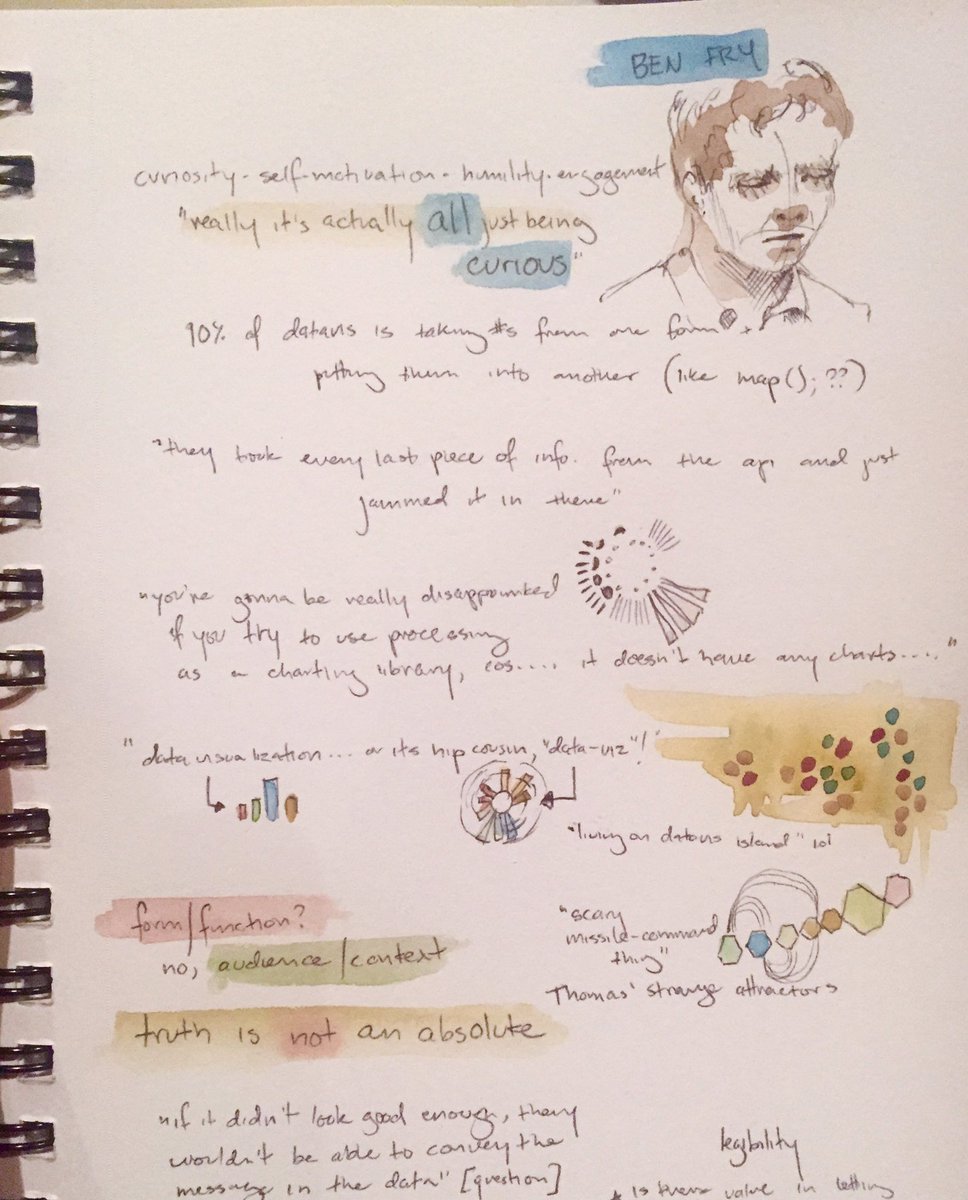 BEN FRY
curiosity - self-motivation - humility. engagement
"really it's actually all just being
curious"
90% of datavis is taking #s from one form +
putting them into another (like map(); ??)
"they took every last piece of info. from the api and just
jammed it in there"
"you're gonna be really disappointed
if you try to use processing
as a charting library, cos.... it doesn't have any charts....."
"data visualization... or its hip cousin, "data-viz"!"
"living on datavis island" lol
form/function?
no, audience/context
"scary
missile-command
thing"
Thomas' strange attractors
truth is not an absolute
"if it didn't look good enough, they
wouldn't be able to convey the
message in the data" [question]
legibility
* is there value in letting